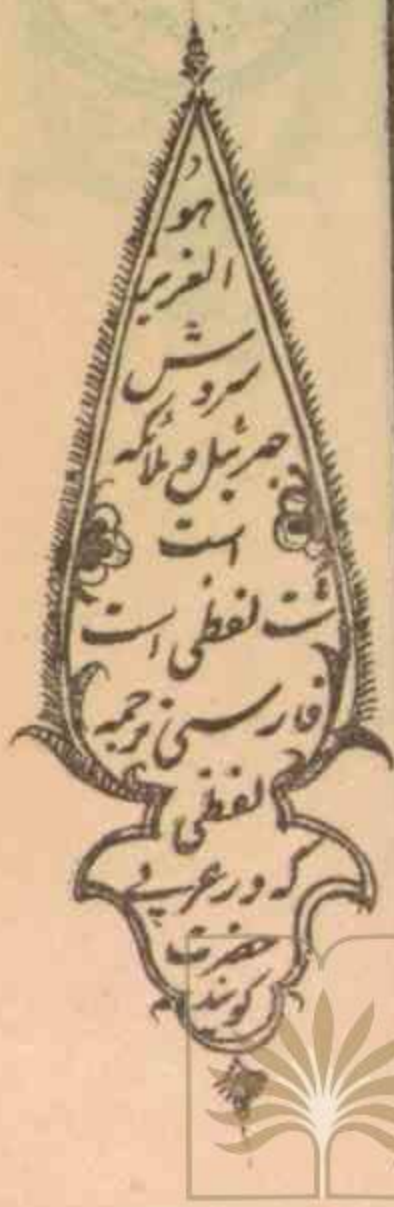 هو
سروش
جبرئیل و ملائکه
است
شت لفظی است
فارسی ترجمه
لفظی
که در عربی
حضرت
گویند